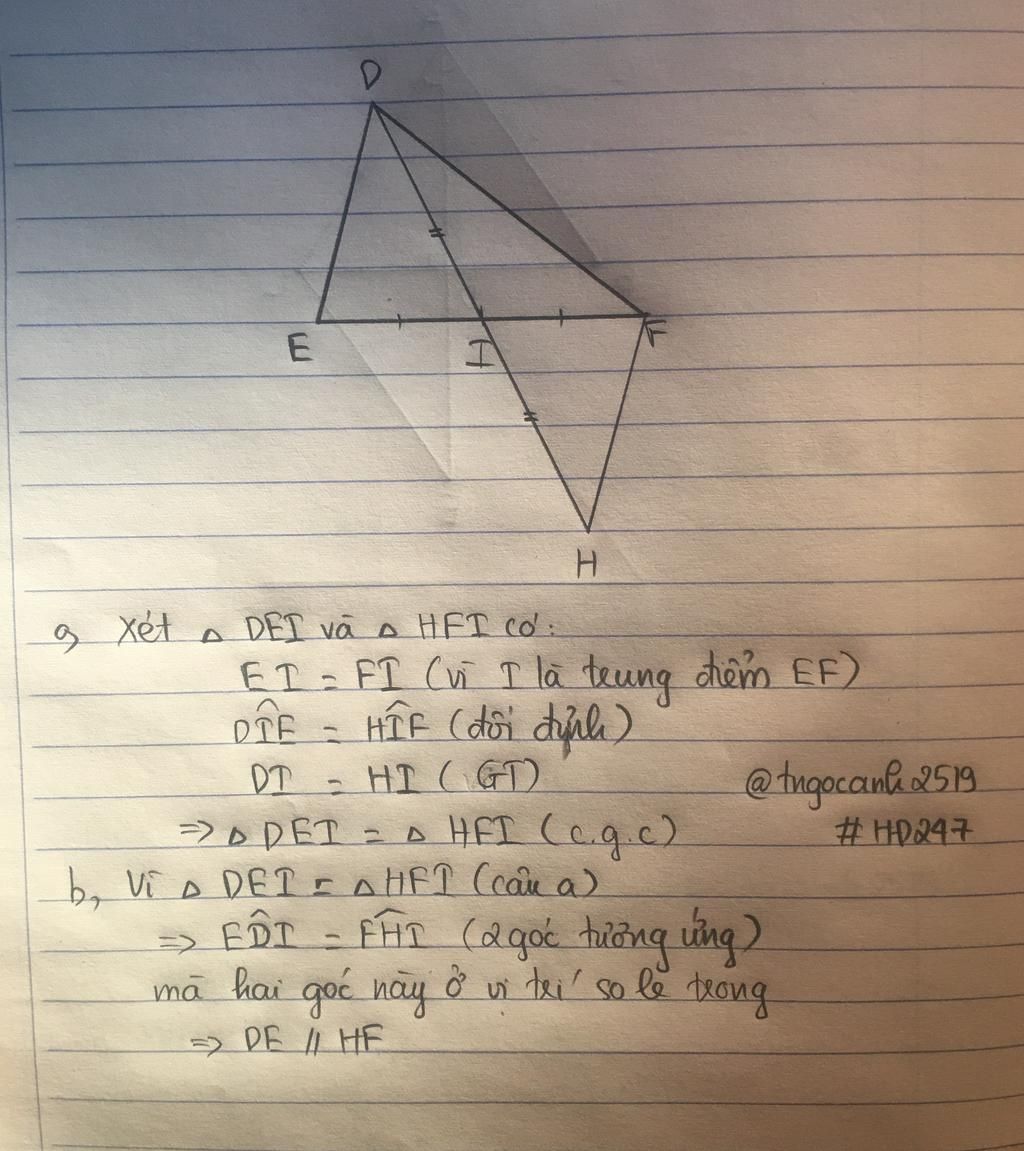 D
E
I
F
H
a, Xét △ DEI và △ HFI có:
EI = FI (vì I là trung điểm EF)
DÎE = HÎF (đối đỉnh)
DI = HI (GT)
@tngocanh2519
=> △ DEI = △ HFI (c.g.c)
#HD247
b, Vì △ DEI = △ HFI (câu a)
=> ED̂I = FĤI (2 góc tương ứng)
mà hai góc này ở vị trí so le trong
=> DE // HF